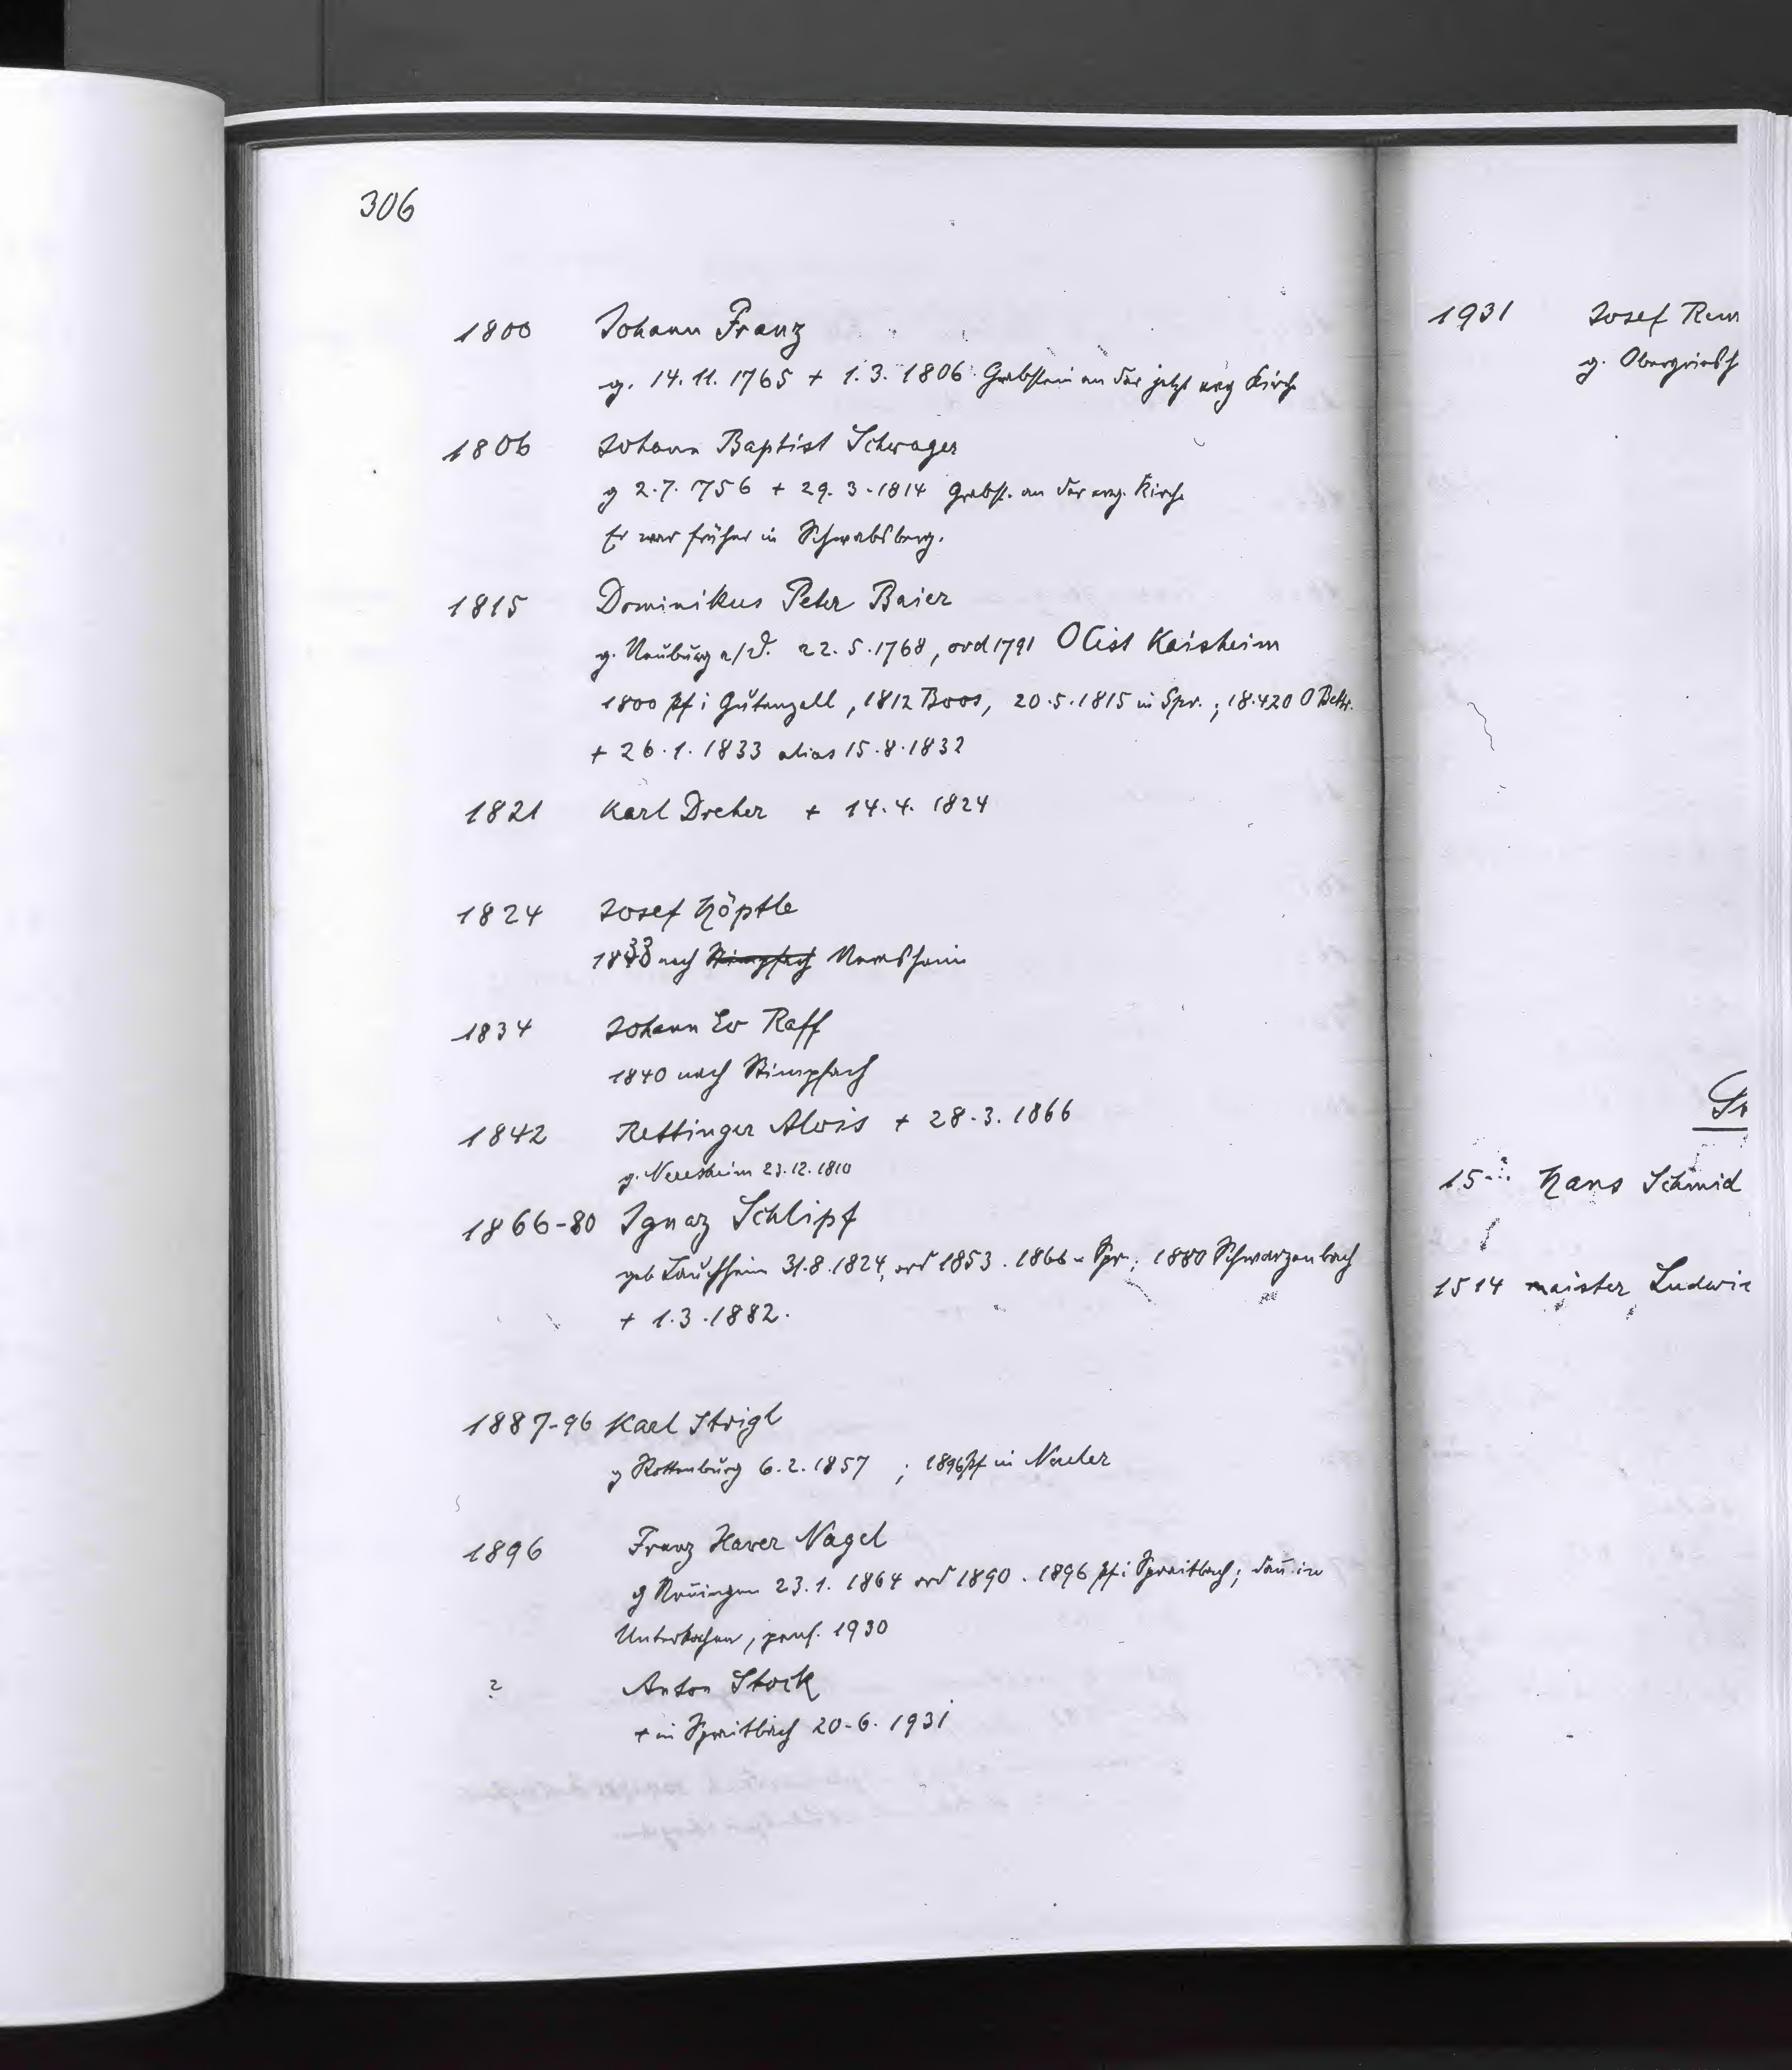 306
1800 Johann Franz
g. 14.11.1765 + 1.3.1806 Grabstein an der jetzt evg Kirche
1806 Johann Baptist Schwager
g 2.7.756 + 29.3.1814 Grabst. an der evg. Kirche
Er war früher in Schwabsberg.
1815 Dominikus Peter Baier
g. Neuburg a/D. 22.5.1768, ord 1791 OCist Kaisheim
1800 Pf i Gutenzell, 1812 Boos, 20.5.1815 in Spr.; 18.4.20 O Bettr.
+ 26.1.1833 alias 15.8.1832
1821 Karl Dreher + 14.4.1824
1824 Josef Höptle
1833 nach Stimpfach Neresheim
1834 Johann Ev Raff
1840 nach Stimpfach
1842 Rettinger Alois + 28.3.1866
g. Neresheim 23.12.1810
1866-80 Ignaz Schlipf
geb Lauchheim 31.8.1824, ord 1853. 1866 - Spr; 1880 Schwarzenbach
+ 1.3.1882.
1887-96 Karl Strigl
g Rottenburg 6.2.1857 ; 1896 Pf in Neuler
1896 Franz Xaver Nagel
g 23.1.1864 ord 1890. 1896 Pf i Spraitbach; dañ in
Unterkochen, pens. 1930
? Anton Stock
+ in Spraitbach 20-6.1931
1931 Josef
g.
15... Hans Schmid
1514 maister Ludwi